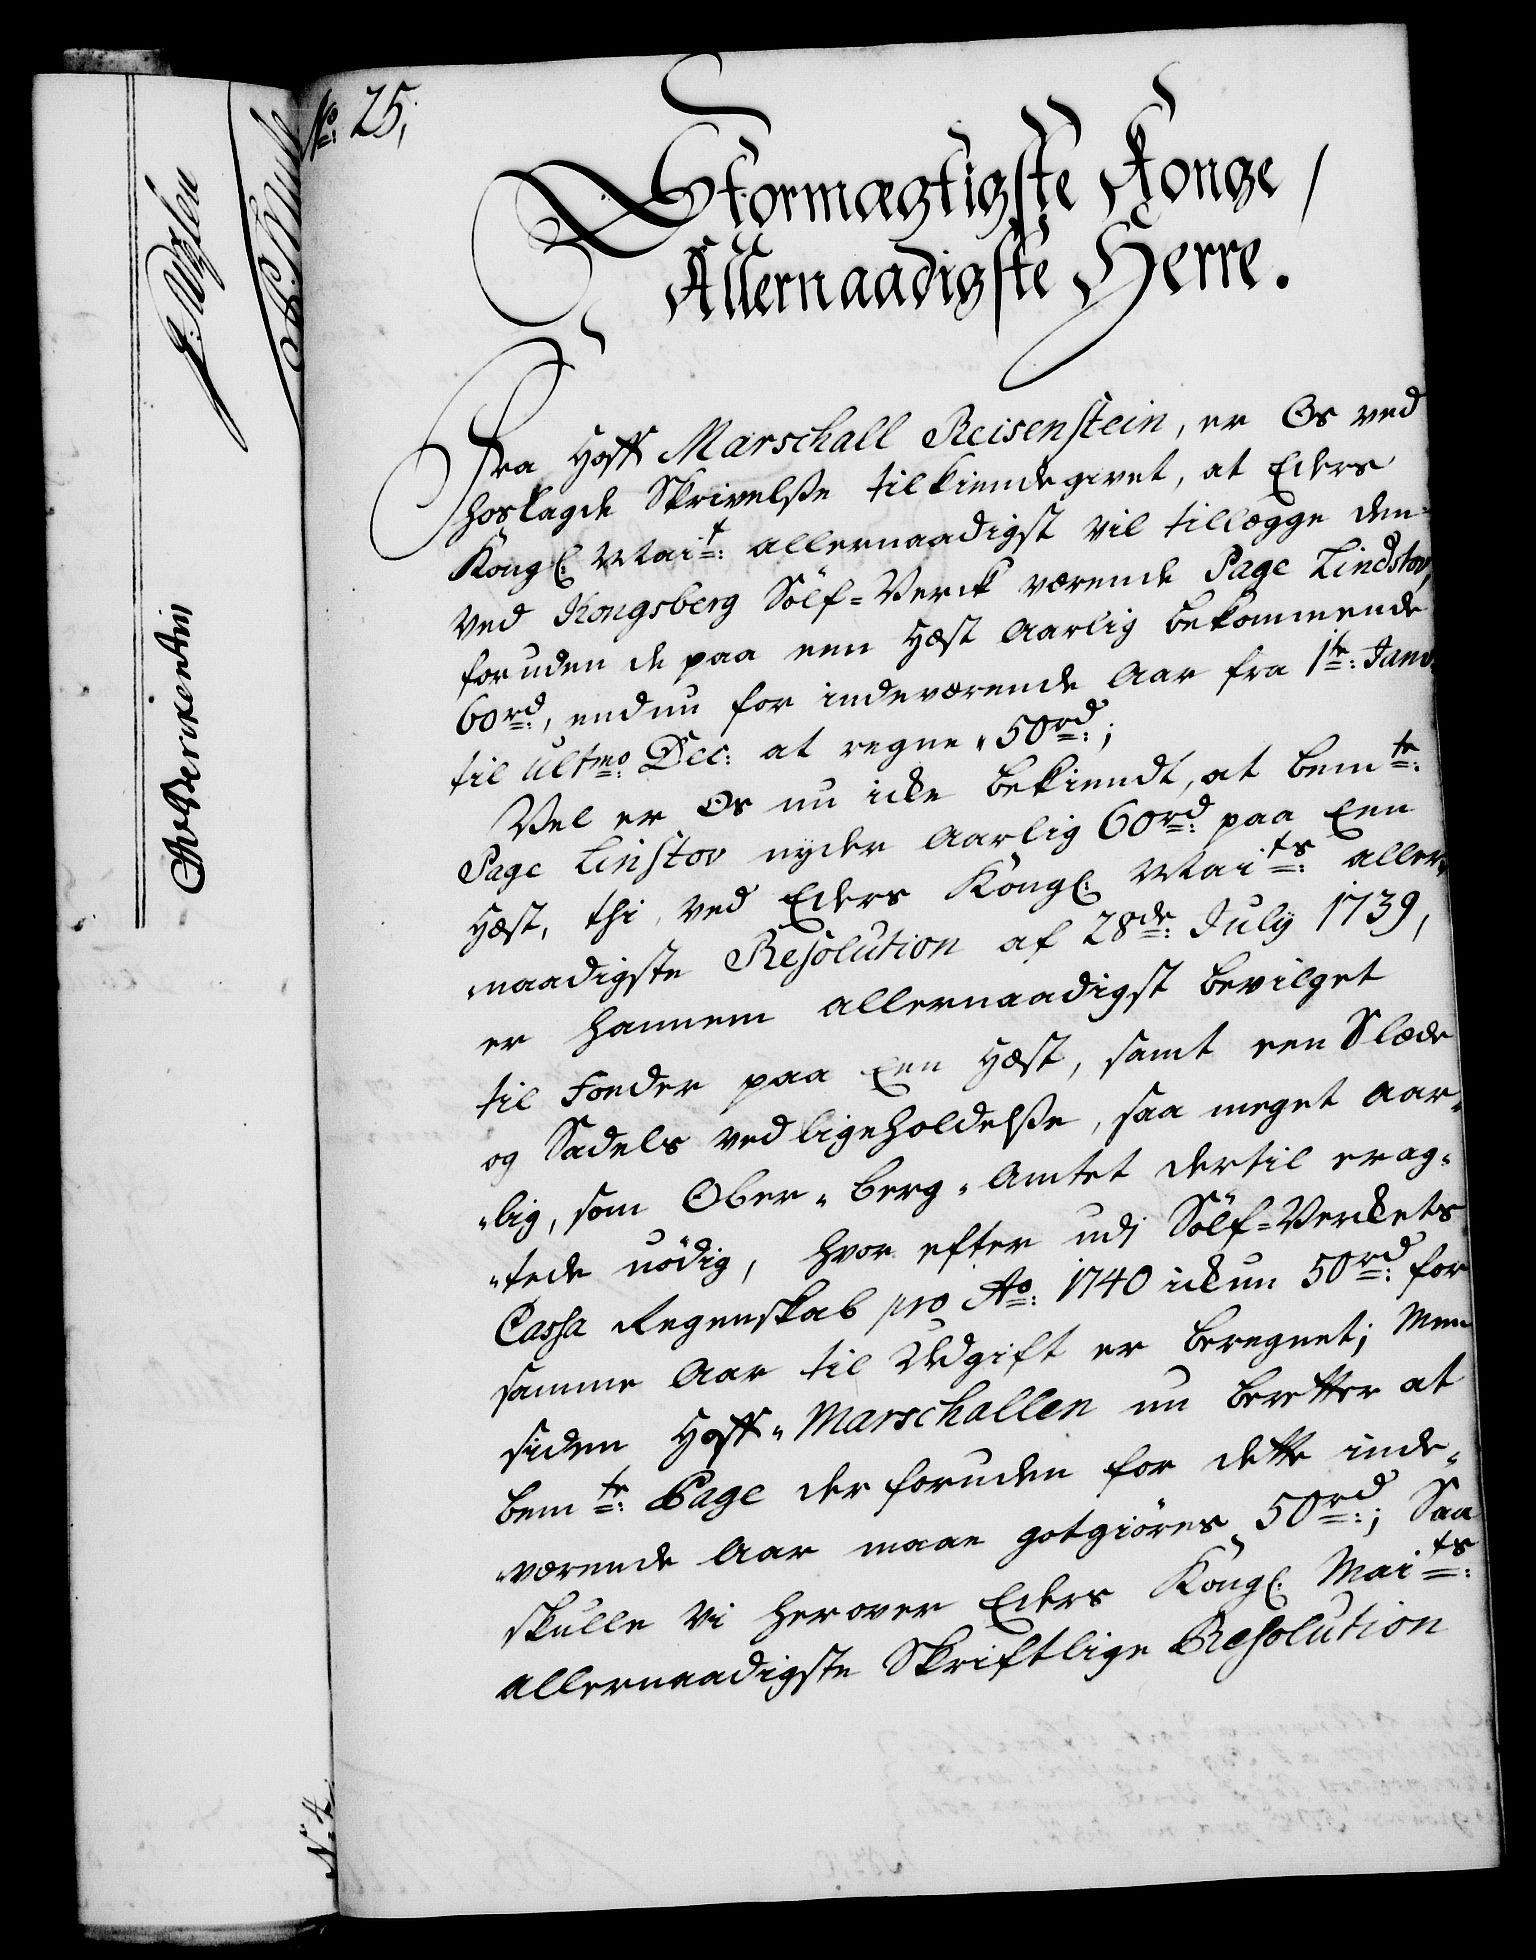 No: 25,
Stormægtigste Konge /
Allernaadigste Herre.
Fra Hoff Marschall Reisenstein, er Os ved
hoslagde Skrivelsse tilkiendegivet, at Eders
Kongl: Mait: allernaadigst vil tillægge den
ved Kongsberg Sölf=Verck værende Page Lindstov,
foruden de paa een Hæst Aarlig bekommende
60rd:, endnu for indeværende Aar fra 1te: Janv:
til Ultmo: Dec: at regne, 50rd:;
Vel er Os nu icke bekiendt, at bemte:
Page Linstov nyder Aarlig 60rd: paa Een
Hæst, thi ved Eders Kongl: Maits: aller-
naadigste Resolution af 28de: July 1739,
er hannem allernaadigst bevilget
til Foeder paa Een Hæst, samt een Slæde
og Sadels vedligeholdelsse, saa meget Aar-
-lig, som Ober-Berg-Amtet dertil erag-
-tede nödig, hvor efter udj Sölf=Verckets
Cassa Regenskab pro Ao: 1740 ickun 50rd: for
samme Aar til Udgift er beregnet; Men
siden Hoff-Marschallen nu beretter at
bemte: Page der foruden for dette inde-
-værende Aar maae gotgiöres 50rd:; Saa
skulle Vi herover Eders Kongl: Maits:
allernaadigste Skriftlige Resolution